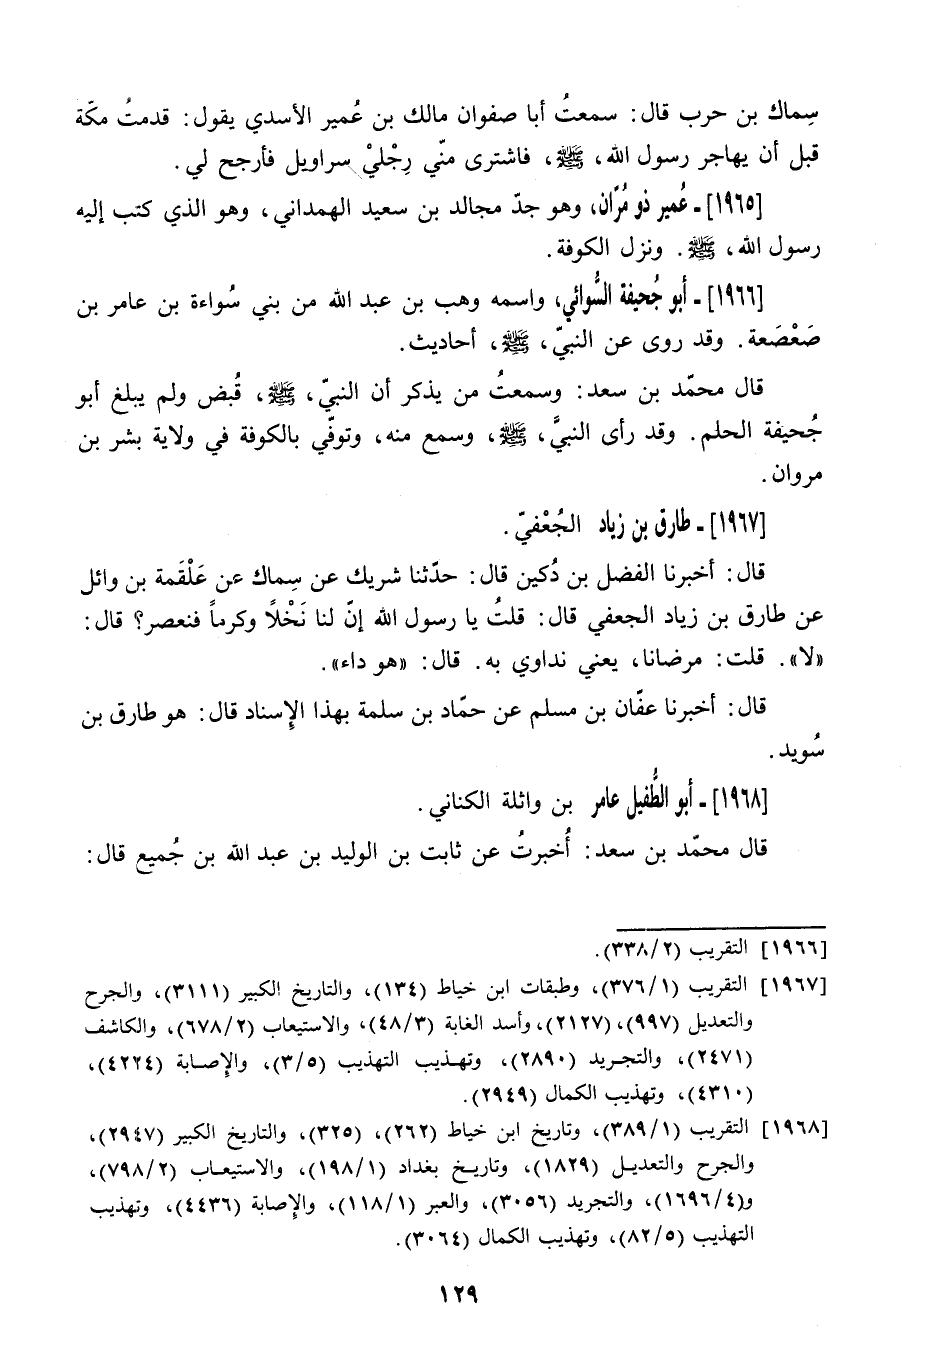 سِماك بن حرب قال: سمعتُ أبا صفوان مالك بن عُمير الأسدي يقول: قدمتُ مكّة
قبل أن يهاجر رسول الله، ﷺ، فاشترى منّي رِجْليْ سراويل فأرجح لي.
[١٩٦٥] ـ عُمير ذو مُرّان، وهو جدّ مجالد بن سعيد الهمداني، وهو الذي كتب إليه
رسول الله، ﷺ. ونزل الكوفة.
[١٩٦٦] ـ أبو جُحيفة السُّوائي، واسمه وهب بن عبد الله من بني سُواءة بن عامر بن
صَعْصَعة. وقد روى عن النبيّ، ﷺ، أحاديث.
قال محمّد بن سعد: وسمعتُ من يذكر أن النبيّ، ﷺ، قُبض ولم يبلغ أبو
جُحيفة الحلم. وقد رأى النبيَّ، ﷺ، وسمع منه، وتوفّي بالكوفة في ولاية بشر بن
مروان.
[١٩٦٧] ـ طارق بن زياد الجُعْفيّ.
قال: أخبرنا الفضل بن دُكين قال: حدّثنا شريك عن سِماك عن عَلْقَمة بن وائل
عن طارق بن زياد الجعفي قال: قلتُ يا رسول الله إنّ لنا نَخْلاً وكرماً فنعصر؟ قال:
«لا». قلت: مرضانا، يعني نداوي به. قال: «هو داء».
قال: أخبرنا عفّان بن مسلم عن حمّاد بن سلمة بهذا الإسناد قال: هو طارق بن
سُويد.
[١٩٦٨] ـ أبو الطُّفيل عامر بن واثلة الكناني.
قال محمّد بن سعد: أُخبرتُ عن ثابت بن الوليد بن عبد الله بن جُميع قال:
[١٩٦٦] التقريب (٣٣٨/٢).
[١٩٦٧] التقريب (٣٧٦/١)، وطبقات ابن خياط (١٣٤)، والتاريخ الكبير (٣١١١)، والجرح
والتعديل (٩٩٧)، (٢١٢٧)، وأسد الغابة (٤٨/٣)، والاستيعاب (٦٧٨/٢)، والكاشف
(٢٤٧١)، والتجريد (٢٨٩٠)، وتهذيب التهذيب (٣/٥)، والإصابة (٤٢٢٤)،
(٤٣١٠)، وتهذيب الكمال (٢٩٤٩).
[١٩٦٨] التقريب (٣٨٩/١)، وتاريخ ابن خياط (٢٦٢)، (٣٢٥)، والتاريخ الكبير (٢٩٤٧)،
والجرح والتعديل (١٨٢٩)، وتاريخ بغداد (١٩٨/١)، والاستيعاب (٧٩٨/٢)،
و(١٦٩٦/٤)، والتجريد (٣٠٥٦)، والعبر (١١٨/١)، والإصابة (٤٤٣٦)، وتهذيب
التهذيب (٨٢/٥)، وتهذيب الكمال (٣٠٦٤).
١٢٩